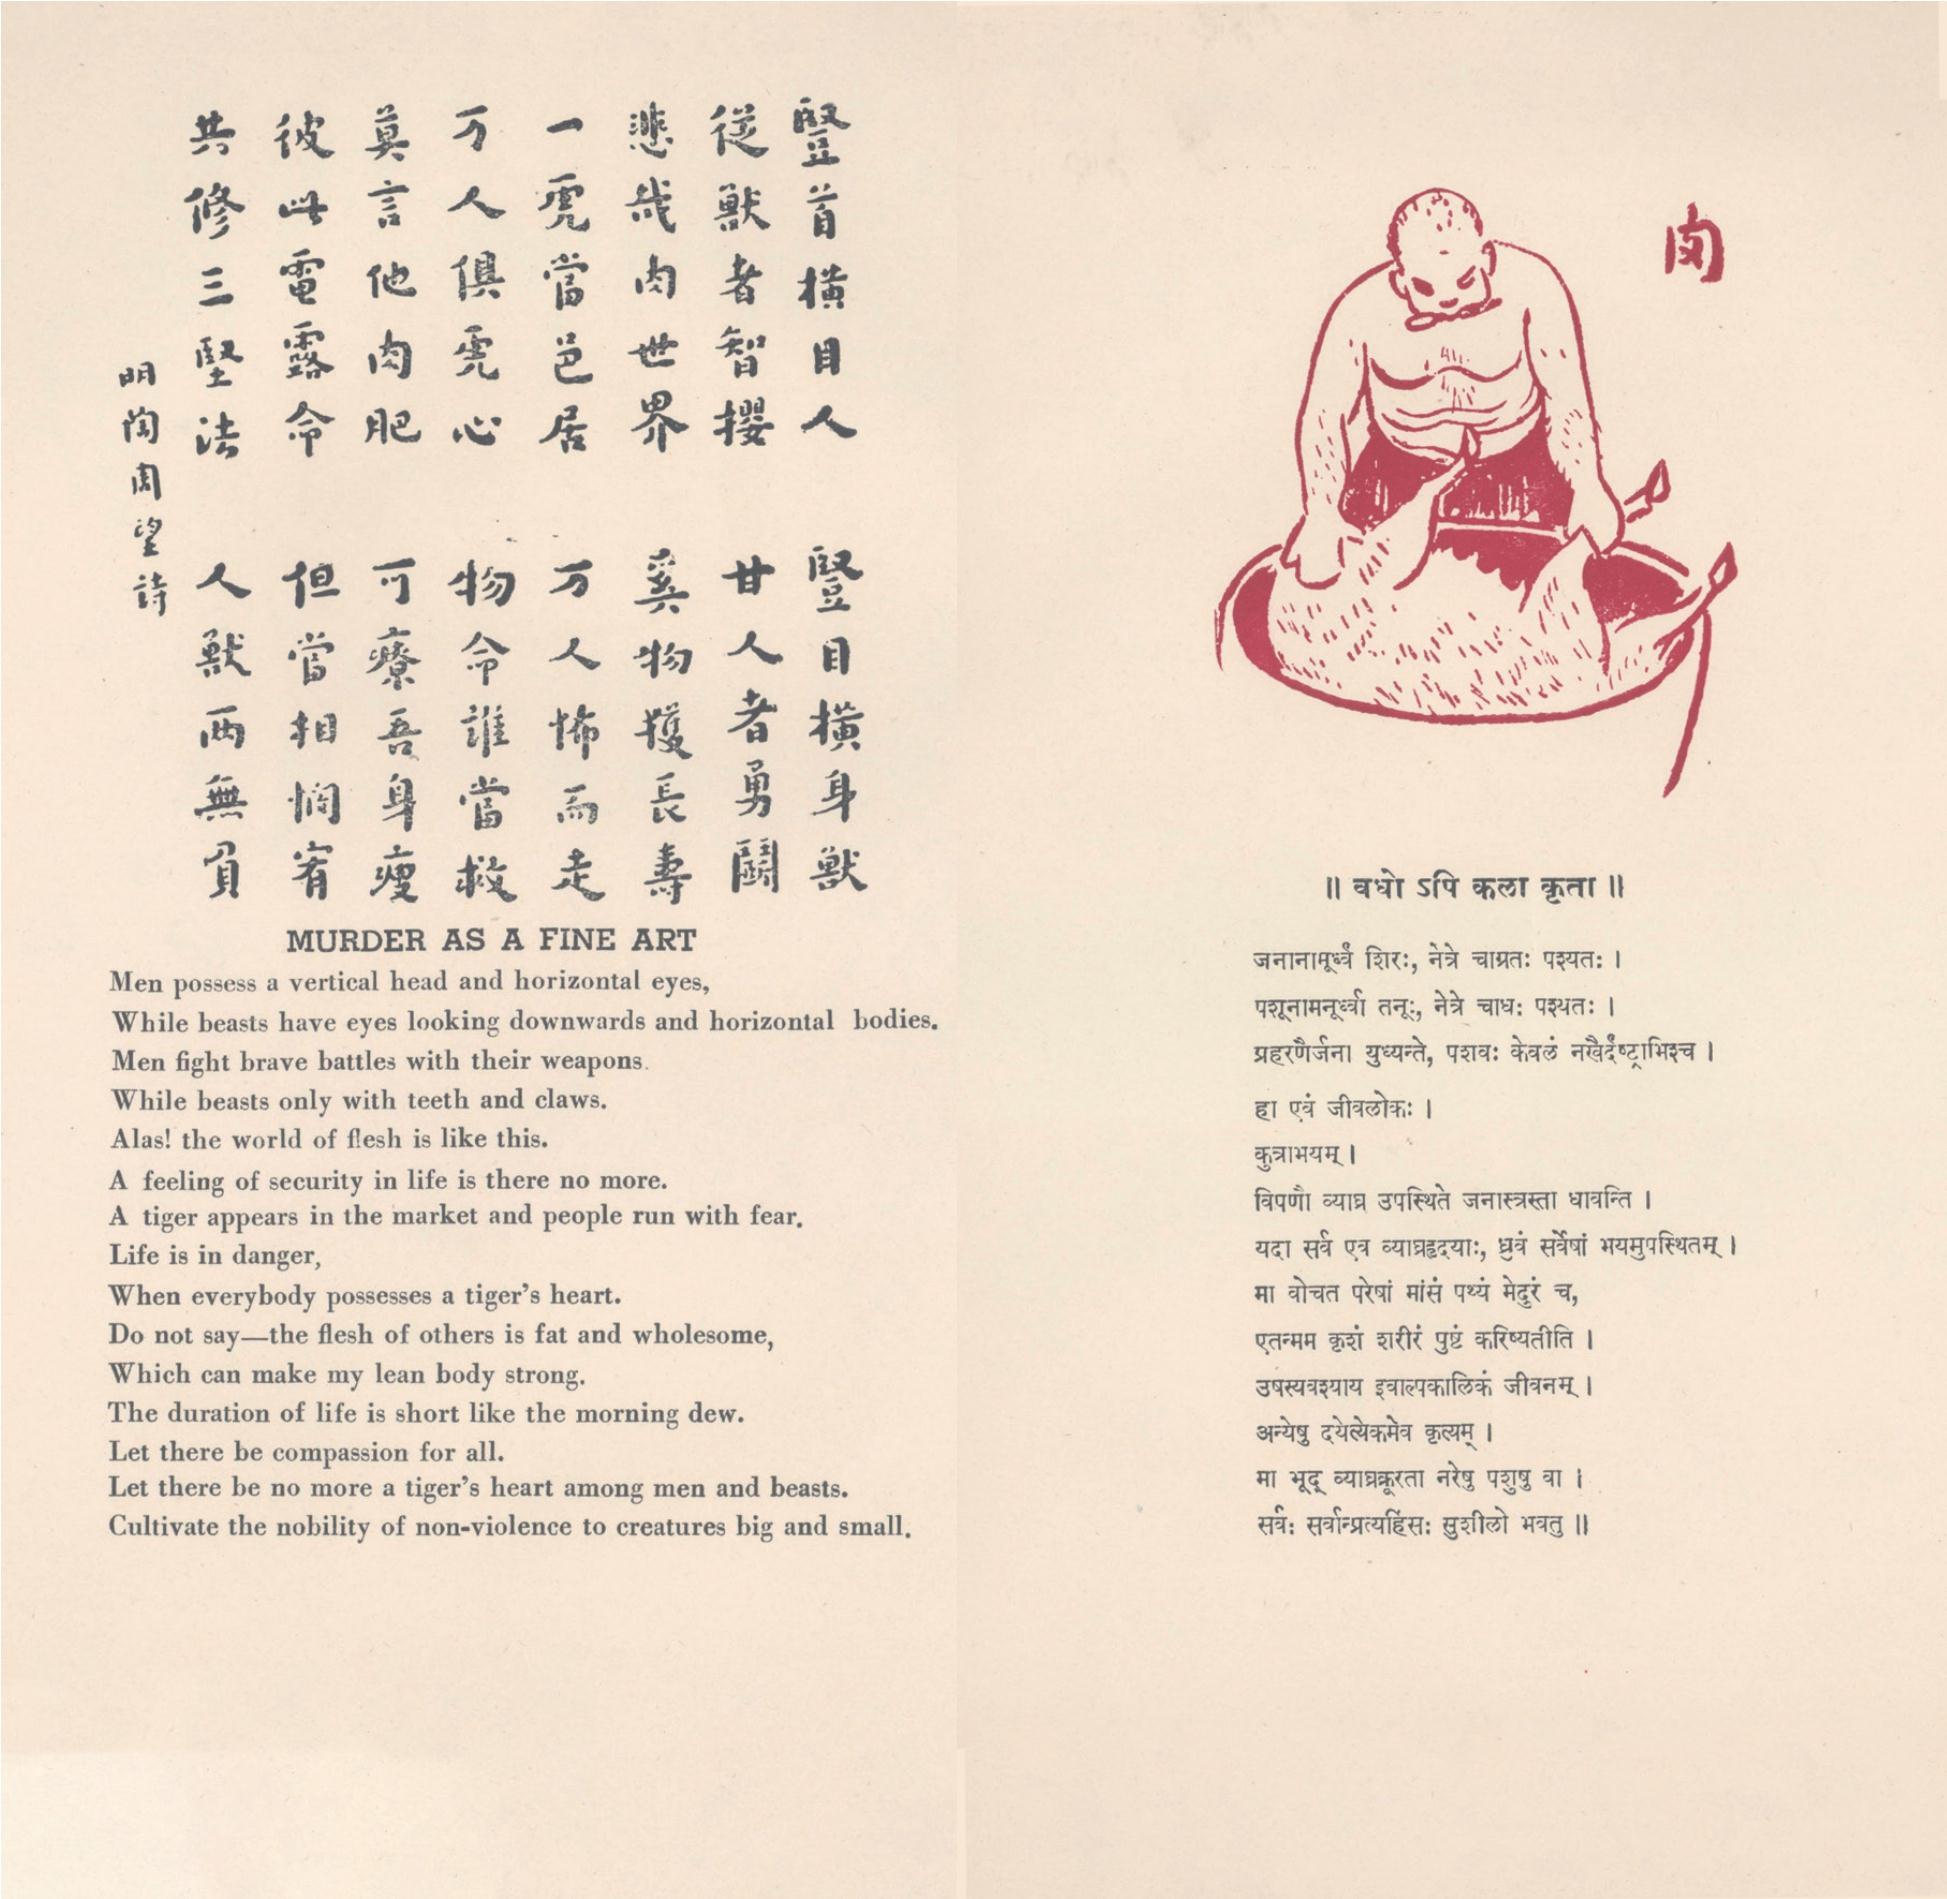 豎首橫目人 豎目橫身獸
從獸者智攖 甘人者勇鬬
悲哉肉世界 奚物獲長壽
一虎當邑居 万人怖而走
万人俱虎心 物命誰當救
莫言他肉肥 可療吾身瘦
彼此電露命 但當相憫宥
共修三堅法 人獸兩無負
明陶周望詩
MURDER AS A FINE ART
Men possess a vertical head and horizontal eyes,
While beasts have eyes looking downwards and horizontal bodies.
Men fight brave battles with their weapons.
While beasts only with teeth and claws.
Alas! the world of flesh is like this.
A feeling of security in life is there no more.
A tiger appears in the market and people run with fear.
Life is in danger,
When everybody possesses a tiger's heart.
Do not say—the flesh of others is fat and wholesome,
Which can make my lean body strong.
The duration of life is short like the morning dew.
Let there be compassion for all.
Let there be no more a tiger's heart among men and beasts.
Cultivate the nobility of non-violence to creatures big and small.
肉
॥ वधो ऽपि कला कृता ॥
जनानामूर्ध्वं शिरः, नेत्रे चाग्रतः पश्यतः ।
पशूनामनूर्ध्वा तनूः, नेत्रे चाधः पश्यतः ।
प्रहरणैर्जना युध्यन्ते, पशवः केवलं नखैर्दंष्ट्राभिश्च ।
हा एवं जीवलोकः ।
कुत्राभयम् ।
विपणौ व्याघ्र उपस्थिते जनास्त्रस्ता धावन्ति ।
यदा सर्व एव व्याघ्रहृदयाः, ध्रुवं सर्वेषां भयमुपस्थितम् ।
मा वोचत परेषां मांसं पथ्यं मेदुरं च,
एतन्मम कृशं शरीरं पुष्टं करिष्यतीति ।
उषस्यवश्याय इवाल्पकालिकं जीवनम् ।
अन्येषु दयेत्येकमेव कृत्यम् ।
मा भूद् व्याघ्रक्रूरता नरेषु पशुषु वा ।
सर्वः सर्वान्प्रत्यहिंसः सुशीलो भवतु ॥